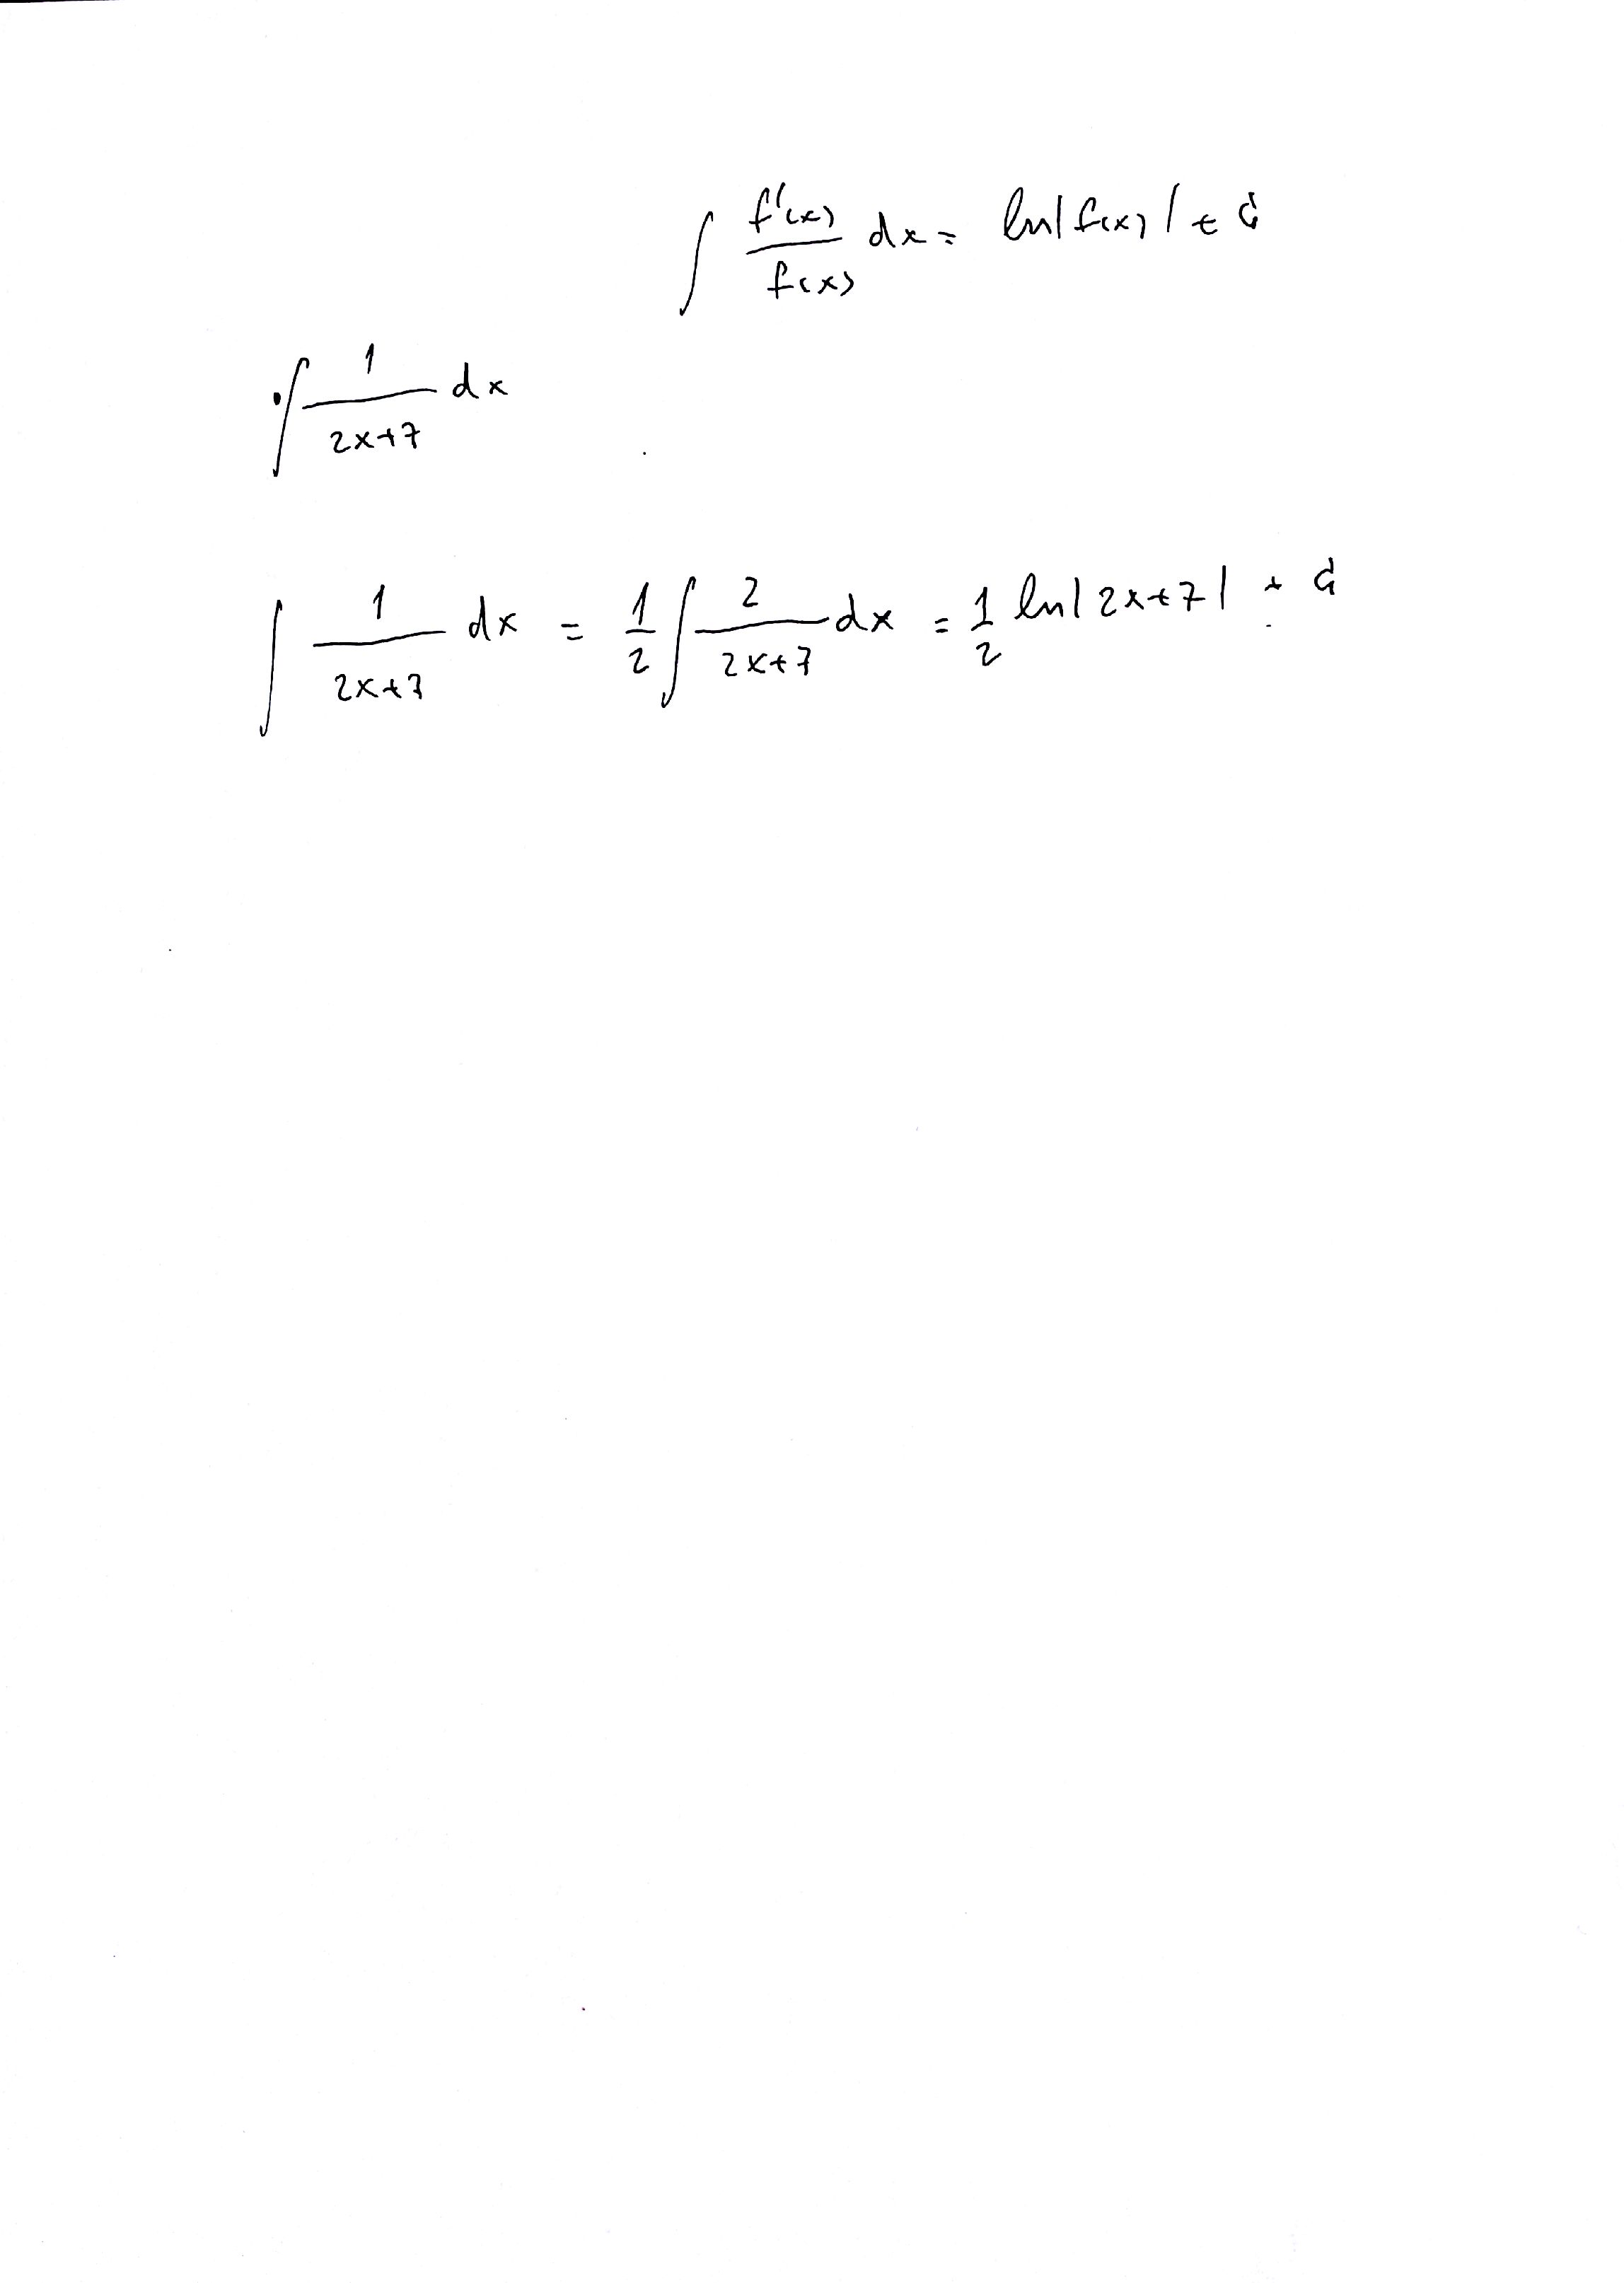 ∫ f'(x)/f(x) dx = ln|f(x)| + C
• ∫ 1/(2x+7) dx
∫ 1/(2x+7) dx = 1/2 ∫ 2/(2x+7) dx = 1/2 ln|2x+7| + C